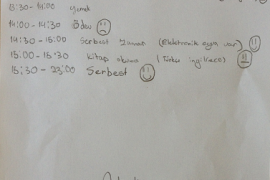 13:30-14:00 Yemek
14:00-14:30 Ödev
14:30-15:00 Serbest Zaman (Elektronik eşya var)
15:00-15:30 Kitap okuma (Türkçe ingilizce)
15:30-23:00 Serbest